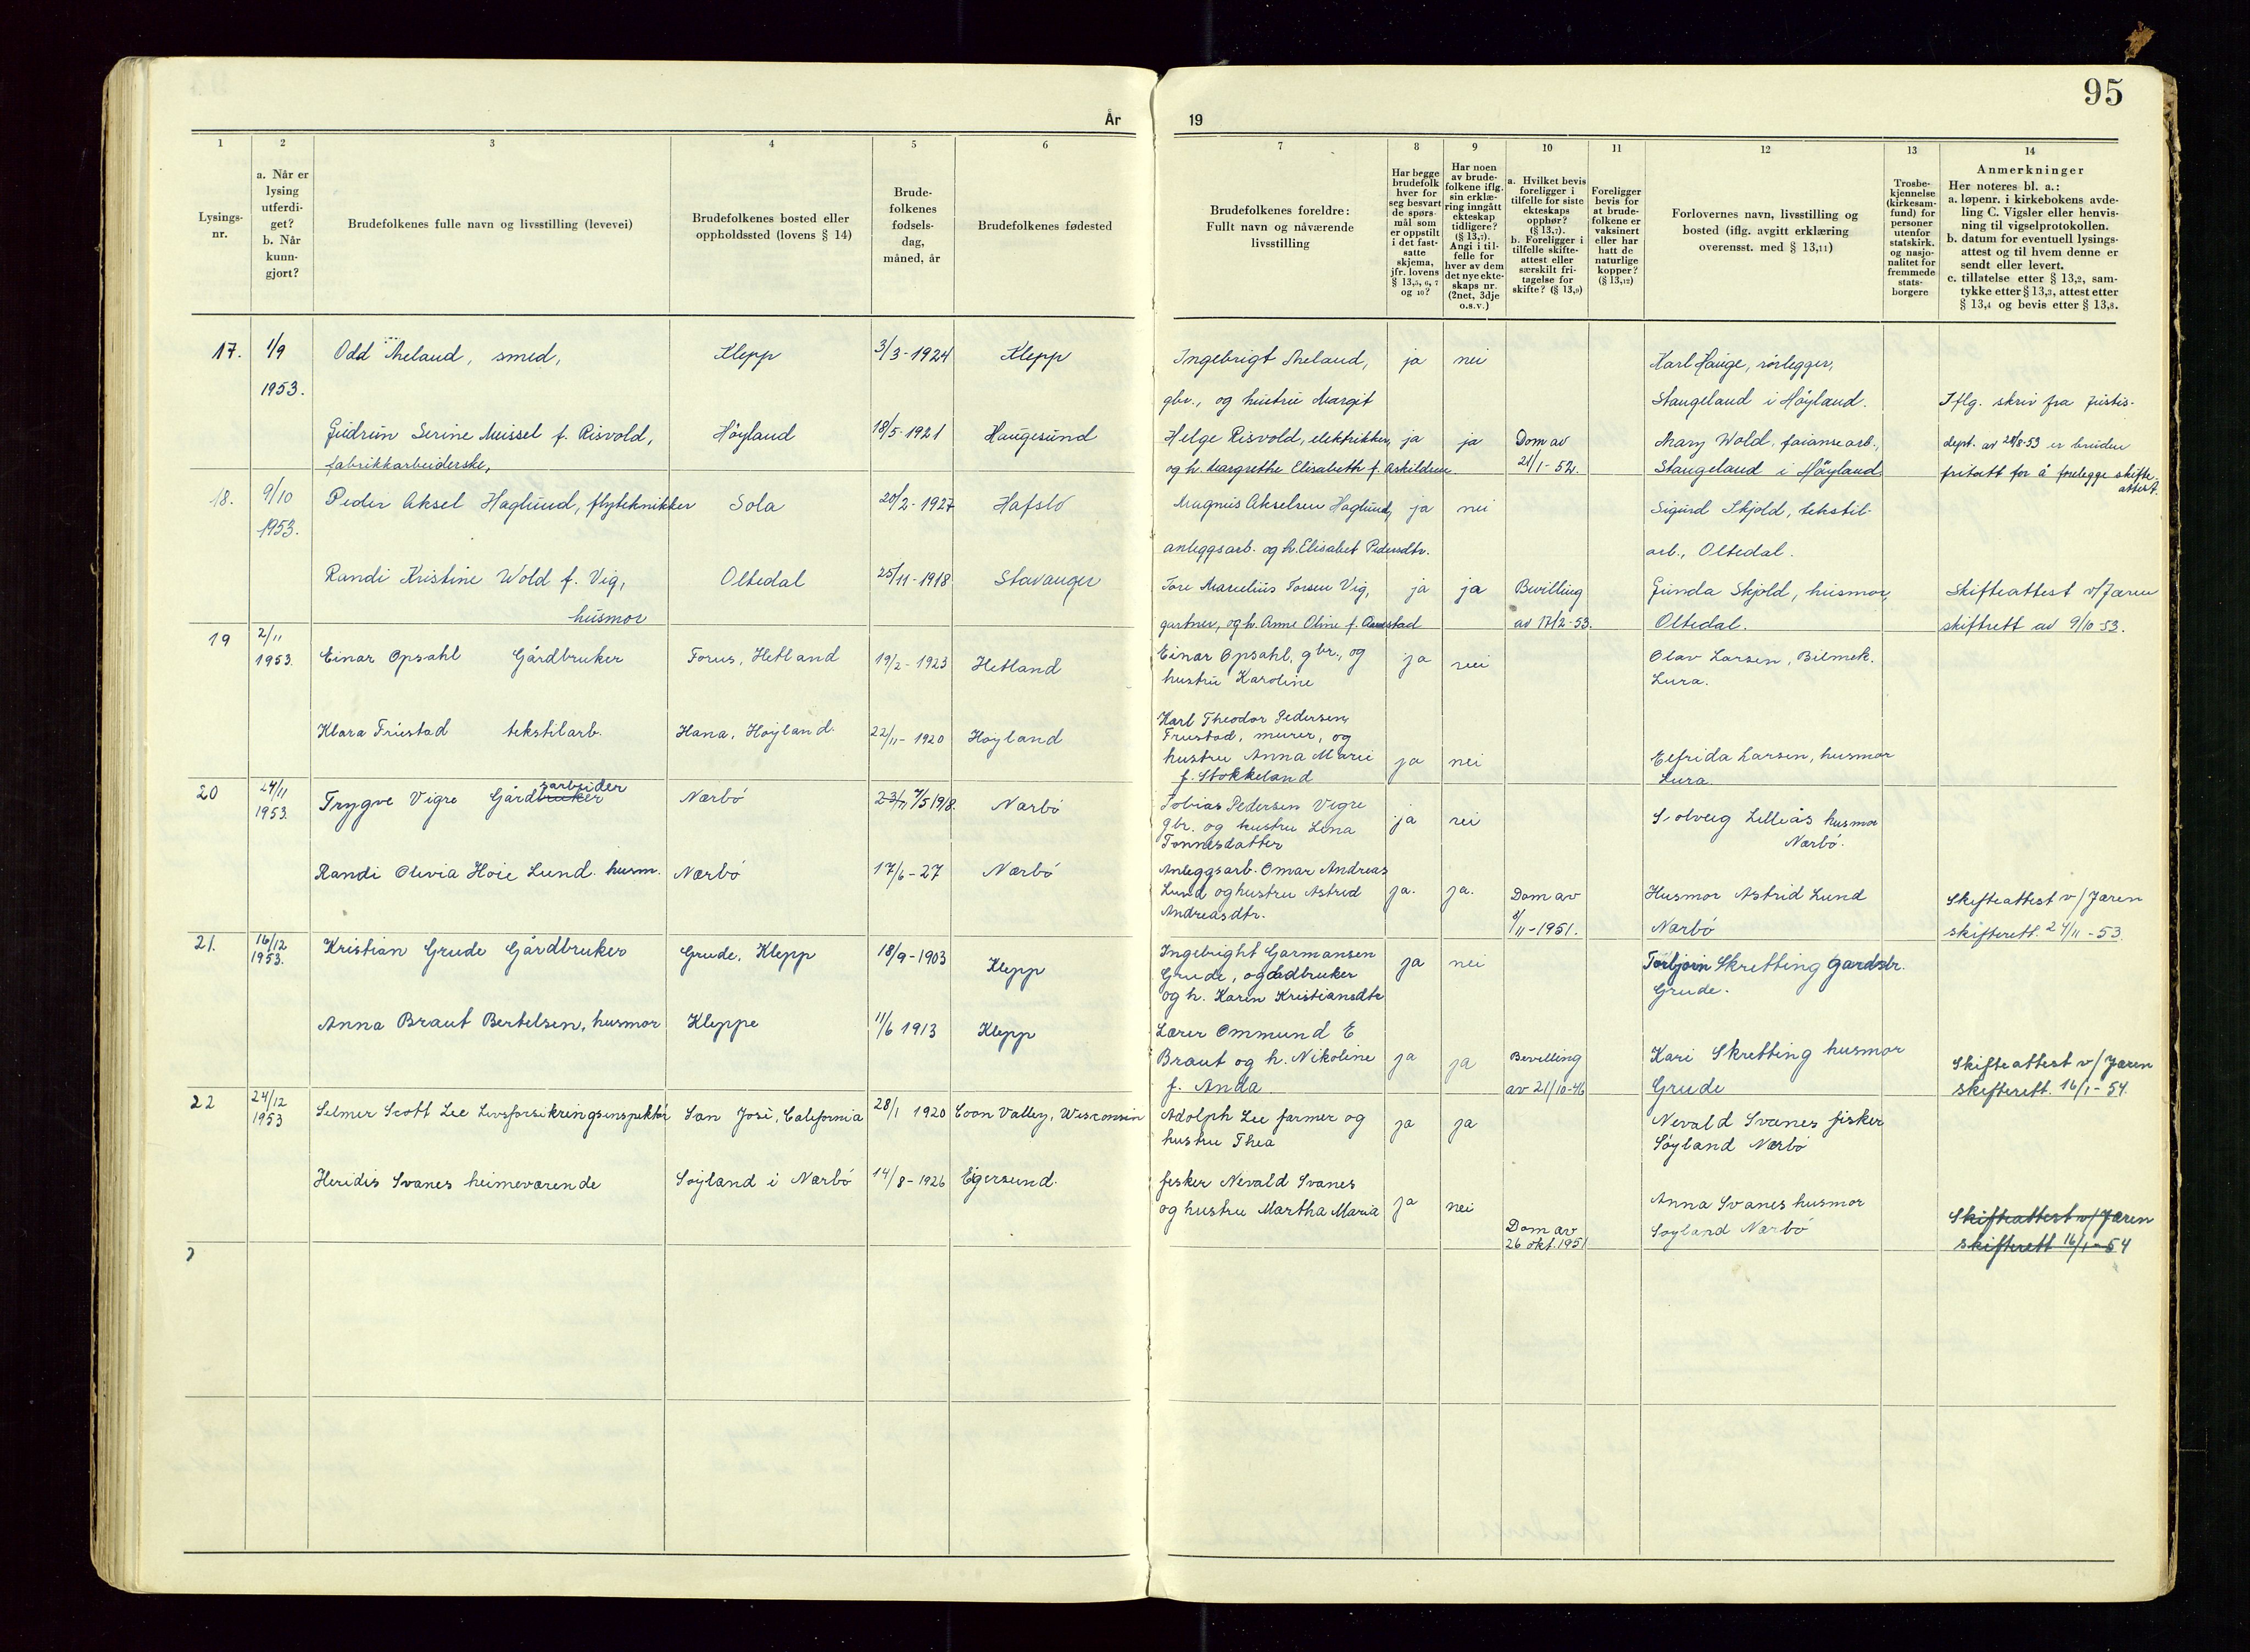 95
År 19
1 2 3 4 5 6 7 8 9 10 11 12 13 14
Lysings-
nr.
a. Når er
lysing
utferdi-
get?
b. Når
kunn-
gjort?
Brudefolkenes fulle navn og livsstilling (levevei)
Brudefolkenes bosted eller
oppholdssted (lovens § 14)
Brude-
folkenes
fødsels-
dag,
måned, år
Brudefolkenes fødested
Brudefolkenes foreldre:
Fullt navn og nåværende
livsstilling
Har begge
brudefolk
hver for
seg besvart
de spørs-
mål som
er oppstilt
i det fast-
satte
skjema,
jfr. lovens
§ 13,5, 6, 7
og 10?
Har noen
av brude-
folkene iflg.
sin erklæ-
ring inngått
ekteskap
tidligere?
(§ 13,7).
Angi i til-
felle for
hver av dem
det nye ekte-
skaps nr.
(2net, 3dje
o.s.v.)
a. Hvilket bevis
foreligger i
tilfelle for siste
ekteskaps
opphør?
(§ 13,7).
b. Foreligger i
tilfelle skifte-
attest eller
særskilt fri-
tagelse for
skifte? (§ 13,9)
Foreligger
bevis for
at brude-
folkene er
vaksinert
eller har
hatt de
naturlige
kopper?
(§ 13,12)
Forlovernes navn, livsstilling og
bosted (iflg. avgitt erklæring
overensst. med § 13,11)
Trosbe-
kjennelse
(kirkesam-
fund) for
personer
utenfor
statskirk.
og nasjo-
nalitet for
fremmede
stats-
borgere
Anmerkninger
Her noteres bl. a.:
a. løpenr. i kirkebokens avde-
ling C. Vigsler eller henvis-
ning til vigselprotokollen.
b. datum for eventuell lysings-
attest og til hvem denne er
sendt eller levert.
c. tillatelse etter § 13,2, sam-
tykke etter § 13,3, attest etter
§ 13,4 og bevis etter § 13,8.
17. 1/9 Odd, smed, Klepp 3/3-1924 Klepp Ingebrigt ja nei Karl Hauge, rørlegger,
1953. gbr., og hustru Margit Stangeland i Høyland. Iflg. skriv fra justis-
Gudrun Serine Meissel f. Risvold, Høyland 18/5-1921 Haugesund Helge Risvold, elektrikker, ja ja Dom av Mary Wold, faiansearb., dept. av 28/8-53 er bruden
fabrikkarbeiderske, og h. Margrethe Elisabeth f. Askildsen. 21/1-52. Stangeland i Høyland. fritatt for å forelegge skifte-
attest.
18. 9/10 Peder Aksel Haglund, flyteknikker Sola 20/2-1927 Hafslo Magnus Akselsen Haglund, ja nei Sigurd Skjold, tekstil-
1953. anleggsarb. og h. Elisabet Pedersdtr. arb., Oltedal.
Randi Kristine Wold f. Vig, Oltedal 25/11-1918 Stavanger Tore Marcelius Torsen Vig, ja ja Bevilling Gunda Skjold, husmor, Skifteattest v/Jæren
husmor gartner, og h. Anne Oline f. av 17/2-53. Oltedal. skifterett av 9/10-53.
19 2/11
1953. Einar Opsahl Gårdbruker Forus, Hetland 19/2-1923 Hetland Einar Opsahl, gbr., og ja nei Olav Larsen, Bilmek.
hustru Karoline Lura.
Klara Frustad tekstilarb. Hana, Høyland. 22/11-1920 Høyland Karl Theodor Pedersen,
Frustad, murer, og
hustru Anna Marie ja nei Elfrida Larsen, husmor
f. Stokkeland Lura.
20 24/11
1953. Trygve Vigre Gårdbruker sarbeider Nærbö 23/11 7/5 1918. Nærbö Tobias Pedersen Vigre
gbr. og hustru Lena ja nei Solveig Lilleås husmor
Tønnesdatter Nærbö.
Randi Olivia Hoie Lund. husm. Nærbö 17/6-27 Nærbö Anleggsarb. Omar Andreas
Lund og hustru Astrid ja. ja. Dom av Husmor Astrid Lund Skifteattest v/Jæren
Andreasdtr. 8/11-1951. Nærbö skifterett. 24/11-53.
21. 16/12
1953. Kristian Grude Gårdbruker Grude, Klepp 18/9-1903 Klepp Ingebright Garmansen ja nei Torbjørn Skretting Gardsbr.
Grude, gårdbruker Grude.
og h. Karen Kristiansdtr
Anna Braut Bertelsen, husmor Kleppe 11/6 1913 Klepp Lærer Ommund E
Braut og h. Nikoline ja ja Bevilling Kari Skretting husmor Skifteattest v/Jæren
f. Anda av 21/10-46 Grude skifterett. 16/1-54.
22 24/12
1953 Selmer Scott Lee Livsforsikringsinspektør San José, California 28/1 1920 Coon Valley, Wisconsin Adolph Lee farmer og ja ja Nevald Svanes fisker
hustru Thea Søyland Nærbö
Heridis Svanes heimeværende Søyland i Nærbö 14/8-1926 Egersund. fisker Nevald Svanes
og hustru Martha Maria ja nei Anna Svanes husmor
Dom av Søyland Nærbö Skifteattest v/Jæren
26 okt. 1951 skifterett 16/1-54